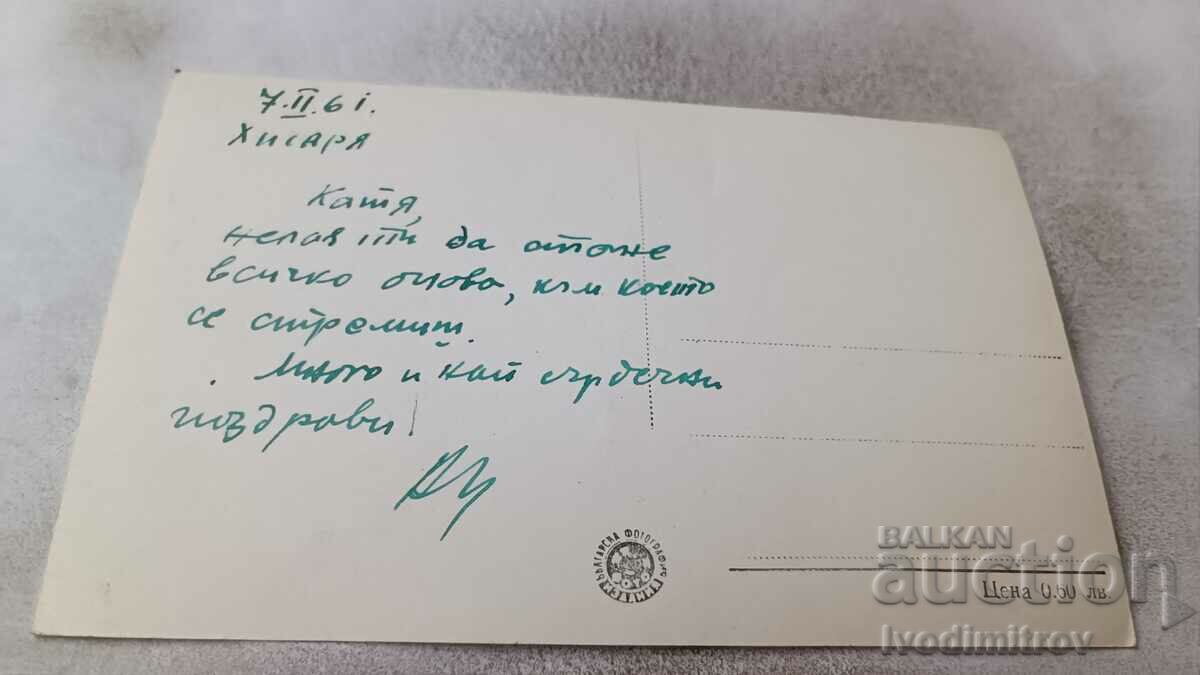 7.II.61.
Хисаря
Катя,
желая ти да
всичко онова, към което
се стремиш.
Много и най сърдечни
поздрави!
БЪЛГАРСКА ФОТОГРАФИЯ
Цена 0.60 лв.
BALKAN
auction
Ivodimitrov